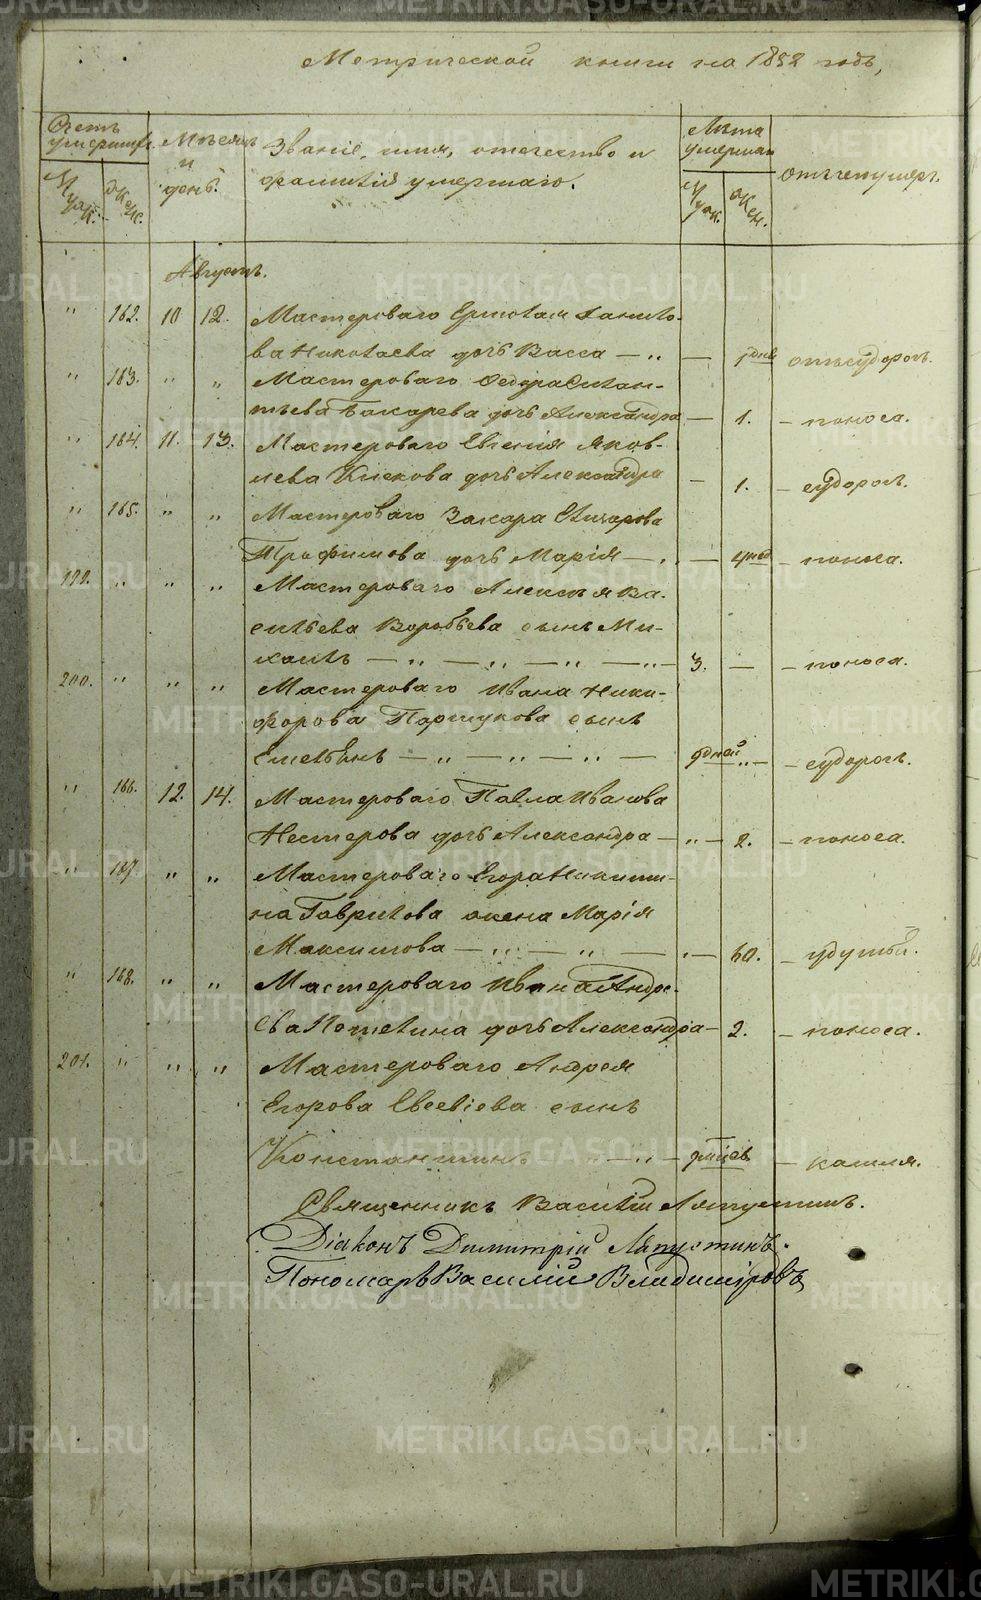 Метрической книги на 1852 годъ,
Счетъ умершихъ
Мѣсяцъ и день.
Званіе, имя, отчество и
фамилія умершаго.
Лѣта умершаго
отъ чего умеръ.
Муж. Жен.
Муж. Жен.
Августъ.
" 182. 10 12. Мастероваго Ермолая Данило-
ва Николаева дочь Васса — " — 1 дня отъ судорогъ.
" 183. " " Мастероваго Федора
тьева дочь Александра — 1. — поноса.
" 184. 11. 13. Мастероваго Евгенія Яков-
лева дочь Александра — 1. — судорогъ.
" 185. " " Мастероваго Захара
Трофимова дочь Марія — " — — поноса.
199. " " " Мастероваго Алексѣя Ва-
сильева Воробьева сынъ Ми-
хаилъ — " — " — " — " — 3. — — поноса.
200. " " " Мастероваго Ивана Ники-
форова Паршукова сынъ
Емельянъ — " — " — " — дней " — — судорогъ.
" 186. 12. 14. Мастероваго Павла Иванова
Нестерова дочь Александра — " — 2. — поноса.
" 187. " " Мастероваго Егора Никити-
на Гаврилова жена Марія
Максимова — " — " — " — 60. — удушья.
" 188. " " Мастероваго Ивана Андре-
ева дочь Александра — 2. — поноса.
201. " " " Мастероваго Андрея
Егорова Евсевіева сынъ
Константинъ " — " — — кашля.
Священникъ Василій Ляпустинъ.
Діаконъ Димитрій Ляпустинъ.
Пономарь Василій Владиміровъ
METRIKI.GASO-URAL.RU